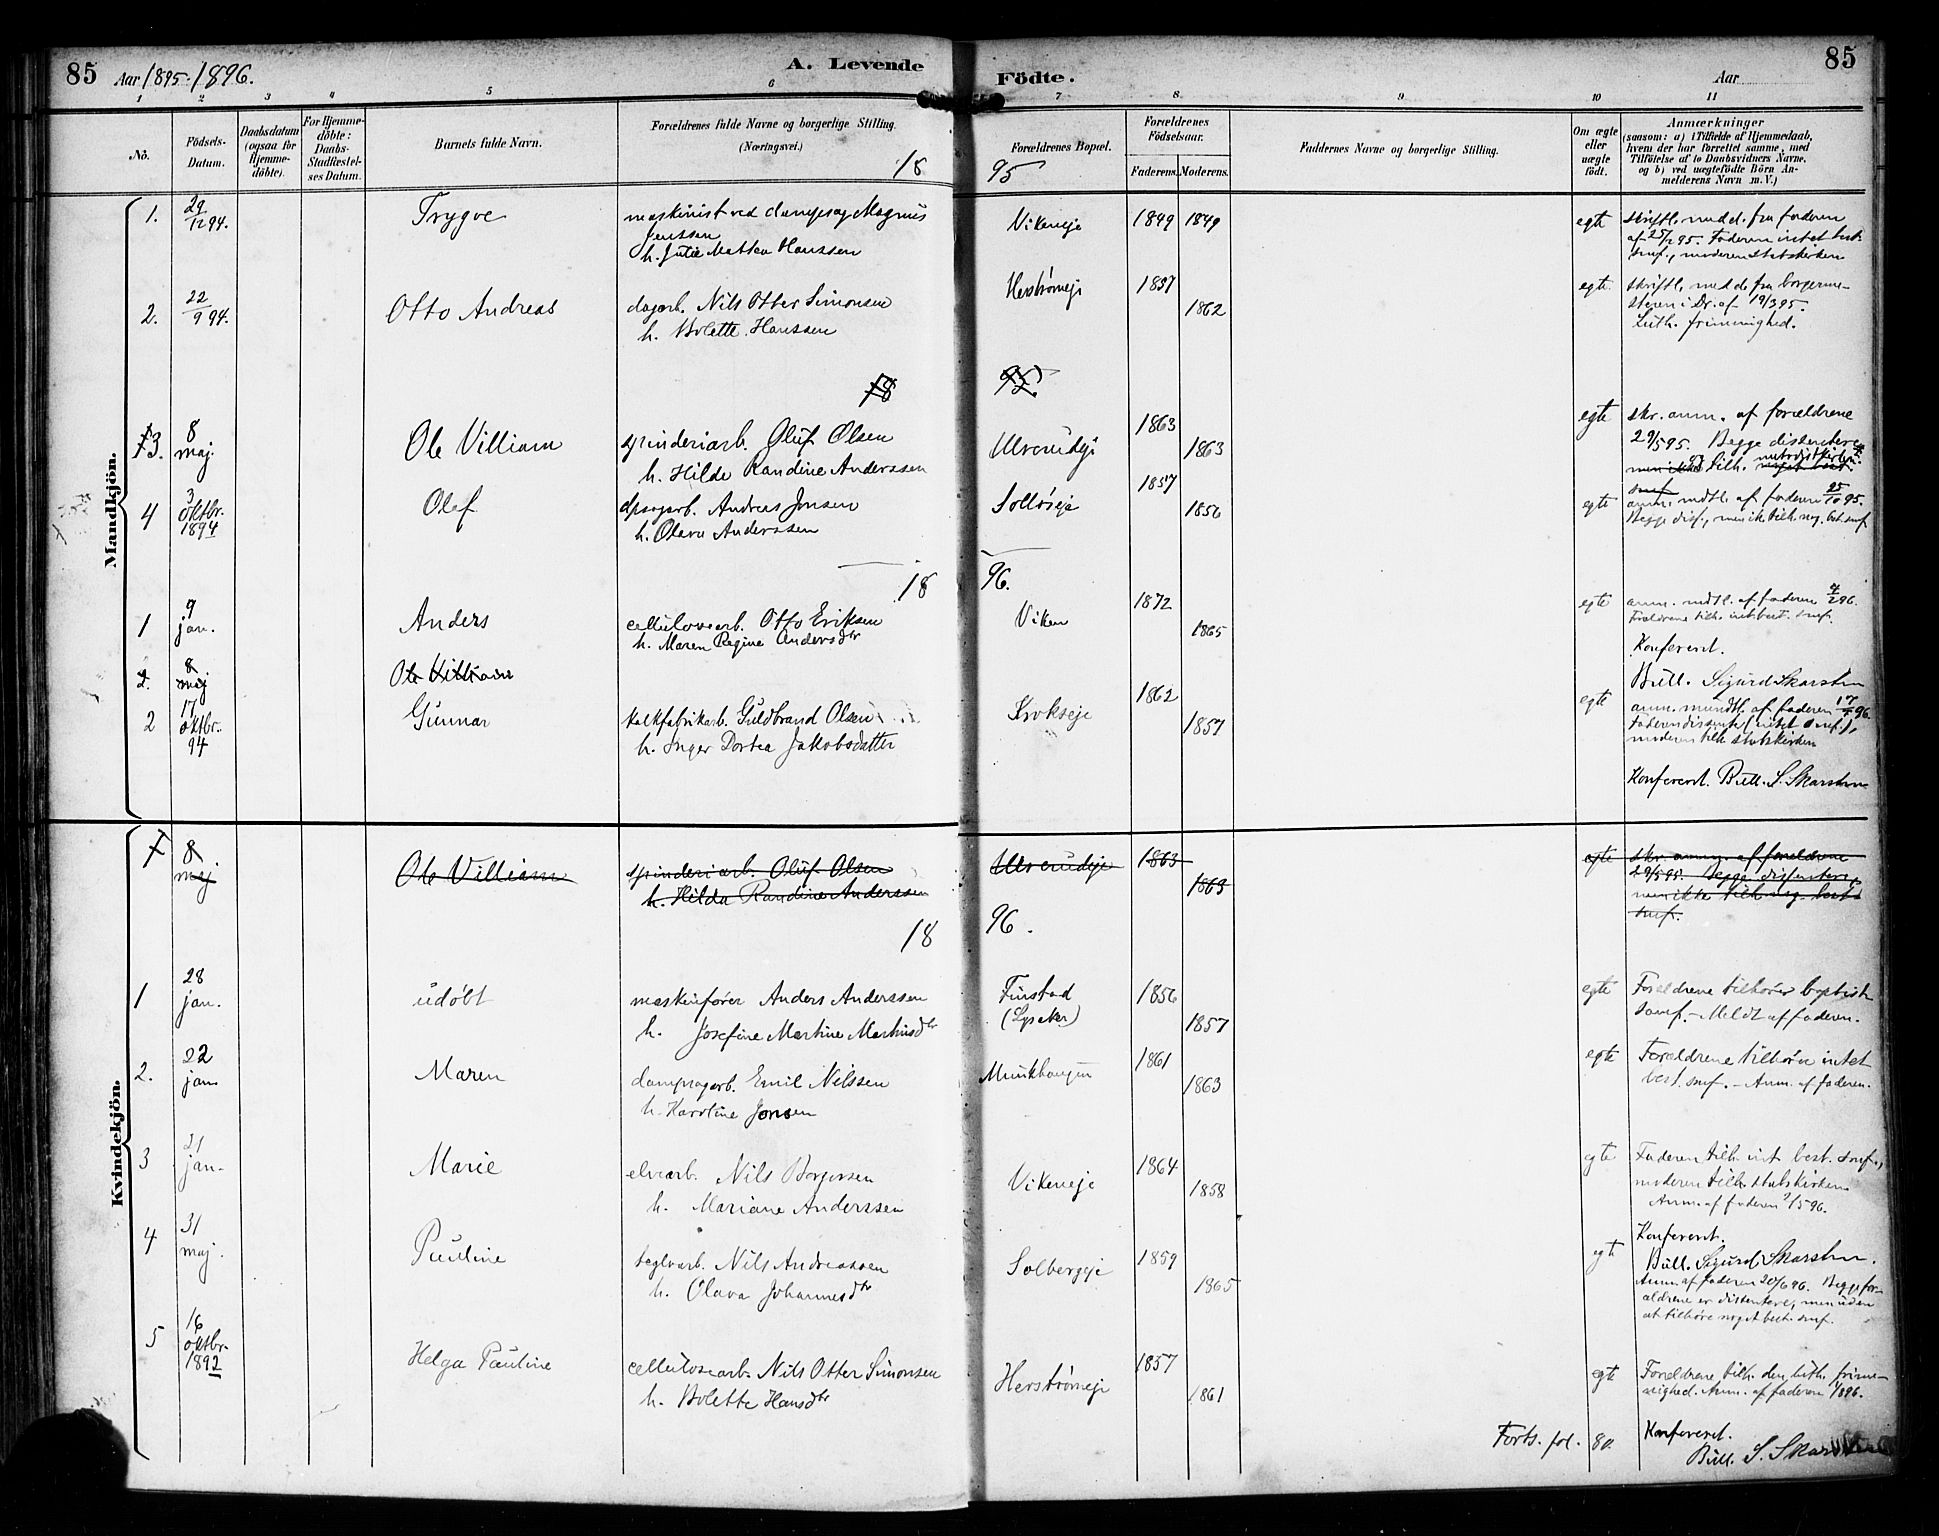 85 Aar 1895-1896. A. Levende Födte. Aar 85
1 2 3 4 5 6 7 8 9 10 11
No. Födsels-Datum. Daabsdatum (ogsaa for Hjemme-döbte). For Hjemme-döbte: Daabs-Stadfæstel-ses Datum. Barnets fulde Navn. Forældrenes fulde Navne og borgerlige Stilling. (Næringsvei.) Forældrenes Bopæl. Forældrenes Födselsaar. Faderens. Moderens. Faddernes Navne og borgerlige Stilling. Om ægte eller uægte födt. Anmærkninger (saasom: a) i Tilfælde af Hjemmedaab, hvem der har forrettet samme, med Tilföielse af to Daabsvidners Navne. og b) ved uægtefödte Börn An-melderens Navn m. V.)
18 95
Mandkjön.
1. 29/12 94. Trygve maskinist ved dampsag Magnus
Jenssen
h. Julie Mathea Hanssen
Vikeneje 1849 1849 egte skriftl. medd. fra faderen
af 25/2 95. Faderen intet best.
smf., moderen statskirken
2. 22/9 94. Otto Andreas dagarb. Nils Otter Simonsen
h. Bolette Hanssen
Herstrømeje 1857 1862 egte skriftl. medd. fra borgerme-
steren i Dr. af 19/3 95.
Luth. frimenighed.
18 95.
3. 8 maj. Ole Villiam spinderiarb. Oluf Olsen
h. Hilda Randine Anderssen
Ulverudeje 1863 1863 egte skr. anm. af forældrene
29/5 95. Begge dissentere
men ikke tilh. noget best. metodistkirken
smf
4 3 oktbr. 1894 Olef dpsagarb. Andreas Jonsen
h. Olava Anderssen
Solløseje 1857 1856 egte anm. mdtl. af faderen 25/10 95.
Begge diss., men ik tilh. nog. best. smf
18 96.
1 9 jan. Anders cellulosearb. Otto Eriksen
h. Maren Regine Andersdtr
Viken 1872 1865 egte anm. mdtl. af faderen 4/2 96.
Forældrene tilh. int. best. smf.
Konfereret.
2. 8 maj Ole Villiam
Bull. Sigurd Skarsten
2 17 oktbr. 94 Gunnar kalkfabrikarb. Guldbrand Olsen
h. Inger Dortea Jakobsdatter
Krokseje 1862 1857 egte anm. mundtl. af faderen
Faderen dissenter (intet smf.),
moderen tilh. statskirken
Konfereret. Bull. S. Skarsten
Kvindekjön.
1 8 maj Ole Villiam spinderiarb. Oluf Olsen
h. Hilda Randine Anderssen
Ulverudeje 1863 1863 egte skr. anm. af forældrene
29/5 95. Begge dissentere,
men ikke tilh. nog. best
smf.
18 96.
1 28 jan. udøbt maskinfører Anders Anderssen
h. Josefine Martine Martinsdtr
Finstad
(Lysaker)
1856 1857 egte Forældrene tilhører baptist
samf. – Meldt af faderen.
2. 22 jan. Maren dampsagarb. Emil Nilssen
h. Karoline Jonsen
Munkhaugen 1861 1863 egte Forældrene tilhører intet
best. smf. – Anm. af faderen.
3 21 jan- Marie elvearb. Nils Borgersen
h. Mariane Anderssen
Vikeneje 1864 1858 egte Faderen tilh. int. best. smf.,
moderen tilh. statskirken
Anm. af faderen 9/5 96.
Konfereret.
Bull. Sigurd Skarsten.
4 31 maj. Pauline teglvarb. Nils Andreassen
h. Olava Johannesdtr
Solbergeje 1859 1865 egte Anm. af faderen 20/6 96. Begge for-
ældrene er dissentere, men uden
at tilhøre noget best. smf.
5 16 oktbr. 1892 Helga Pauline cellulosearb. Nils Otter Simonsen
h. Bolette Hansdtr
Herstrømeje 1857 1861 egte Forældrene tilh. den luth. frime-
nighed. Anm. af faderen
Forts. fol. 80. Konfereret.
Bull. S. Skarsten